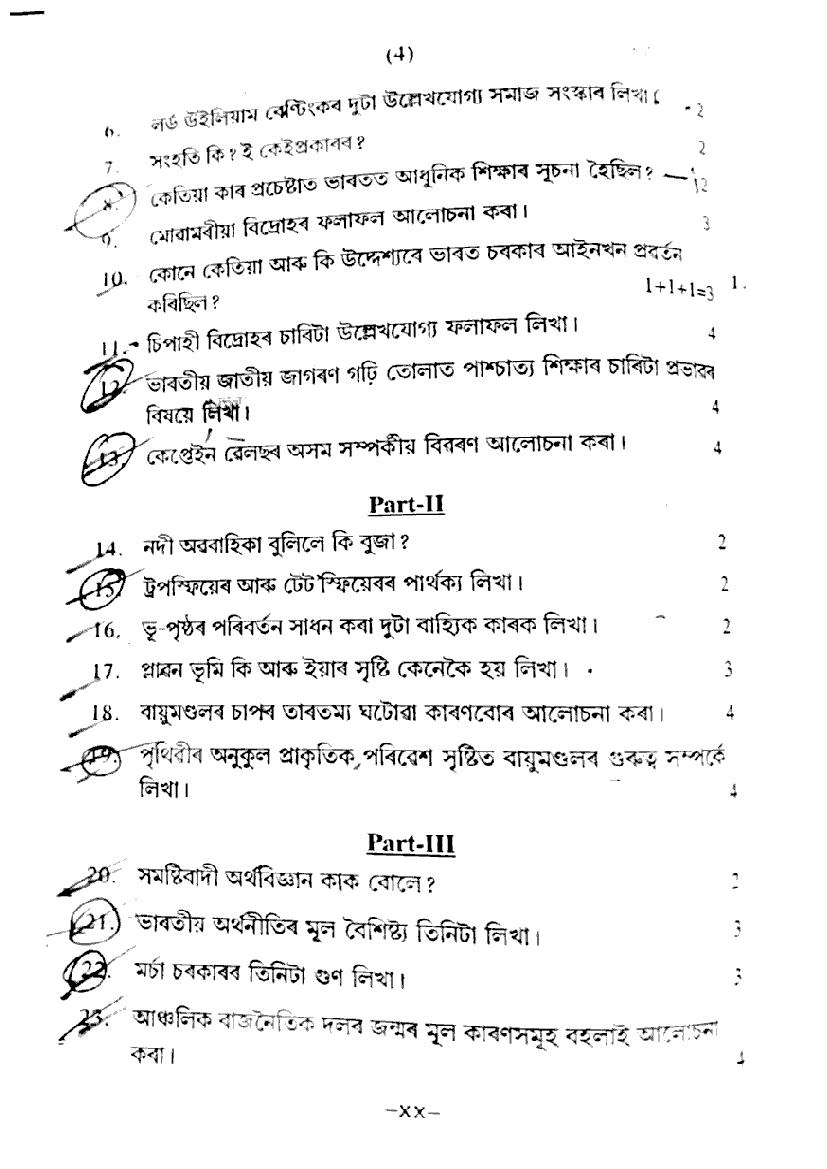 (4)
6. লৰ্ড উইলিয়াম বেণ্টিংকৰ দুটা উল্লেখযোগ্য সমাজ সংস্কাৰ লিখা। 2
7. সংহতি কি? ই কেইপ্ৰকাৰৰ? 2
8. কেতিয়া কাৰ প্ৰচেষ্টাত ভাৰতত আধুনিক শিক্ষাৰ সূচনা হৈছিল? 2
9. মোৱামৰীয়া বিদ্ৰোহৰ ফলাফল আলোচনা কৰা। 3
10. কোনে কেতিয়া আৰু কি উদ্দেশ্যৰে ভাৰত চৰকাৰ আইনখন প্ৰবৰ্তন
কৰিছিল? 1+1+1=3 1.
11. চিপাহী বিদ্ৰোহৰ চাৰিটা উল্লেখযোগ্য ফলাফল লিখা। 4
12. ভাৰতীয় জাতীয় জাগৰণ গঢ়ি তোলাত পাশ্চাত্য শিক্ষাৰ চাৰিটা প্ৰভাৱৰ
বিষয়ে লিখা। 4
13. কেপ্তেইন ৱেলছৰ অসম সম্পৰ্কীয় বিৱৰণ আলোচনা কৰা। 4
Part-II
14. নদী অৱবাহিকা বুলিলে কি বুজা? 2
15. ট্ৰপস্ফিয়েৰ আৰু টেট'স্ফিয়েৰৰ পাৰ্থক্য লিখা। 2
16. ভূ-পৃষ্ঠৰ পৰিবৰ্তন সাধন কৰা দুটা বাহ্যিক কাৰক লিখা। 2
17. প্লাৱন ভূমি কি আৰু ইয়াৰ সৃষ্টি কেনেকৈ হয় লিখা। 3
18. বায়ুমণ্ডলৰ চাপৰ তাৰতম্য ঘটোৱা কাৰণবোৰ আলোচনা কৰা। 4
19. পৃথিৱীৰ অনুকুল প্ৰাকৃতিক পৰিৱেশ সৃষ্টিত বায়ুমণ্ডলৰ গুৰুত্ব সম্পৰ্কে
লিখা। 4
Part-III
20. সমষ্টিবাদী অৰ্থবিজ্ঞান কাক বোলে? 2
21. ভাৰতীয় অৰ্থনীতিৰ মূল বৈশিষ্ট্য তিনিটা লিখা। 3
22. মৰ্চা চৰকাৰৰ তিনিটা গুণ লিখা। 3
23. আঞ্চলিক ৰাজনৈতিক দলৰ জন্মৰ মূল কাৰণসমূহ বহলাই আলোচনা
কৰা। 4
–xx–